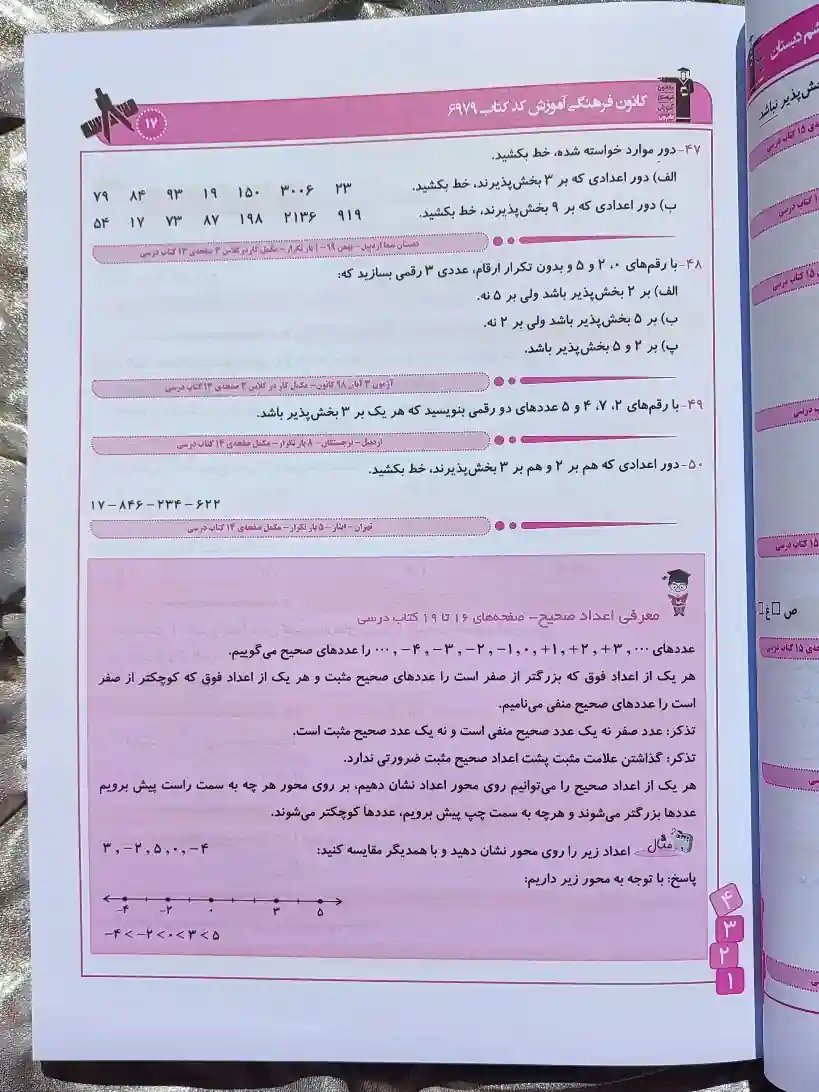 کانون فرهنگی آموزش کد کتاب ۶۹۷۹
۱۷
۴۷- دور موارد خواسته شده، خط بکشید.
الف) دور اعدادی که بر ۳ بخش‌پذیرند، خط بکشید. ۲۳ ۳۰۰۶ ۱۵۰ ۱۹ ۹۳ ۸۴ ۷۹
ب) دور اعدادی که بر ۹ بخش‌پذیرند، خط بکشید. ۹۱۹ ۲۱۳۶ ۱۹۸ ۸۷ ۷۳ ۱۷ ۵۴
دبستان سما اردبیل- بهمن ۹۸- ۱ بار تکرار- مکمل کار در کلاس ۲ صفحه‌ی ۱۳ کتاب درسی
۴۸- با رقم‌های ۰، ۲ و ۵ و بدون تکرار ارقام، عددی ۳ رقمی بسازید که:
الف) بر ۲ بخش‌پذیر باشد ولی بر ۵ نه.
ب) بر ۵ بخش‌پذیر باشد ولی بر ۲ نه.
پ) بر ۲ و ۵ بخش‌پذیر باشد.
آزمون ۳ آبان ۹۸ کانون- مکمل کار در کلاس ۲ صفحه‌ی ۱۳ کتاب درسی
۴۹- با رقم‌های ۲، ۷، ۴ و ۵ عددهای دو رقمی بنویسید که هر یک بر ۳ بخش‌پذیر باشد.
اردبیل- برجستگان- ۸ بار تکرار- مکمل صفحه‌ی ۱۴ کتاب درسی
۵۰- دور اعدادی که هم بر ۲ و هم بر ۳ بخش‌پذیرند، خط بکشید.
۱۷-۸۴۶-۲۳۴-۶۲۲
تهران- ایثار- ۵ بار تکرار- مکمل صفحه‌ی ۱۴ کتاب درسی
معرفی اعداد صحیح- صفحه‌های ۱۶ تا ۱۹ کتاب درسی
عددهای ...,۳+,۲+,۱+,۰,۱-,۲-,۳-,۴-,... را عددهای صحیح می‌گوییم.
هر یک از اعداد فوق که بزرگتر از صفر است را عددهای صحیح مثبت و هر یک از اعداد فوق که کوچکتر از صفر
است را عددهای صحیح منفی می‌نامیم.
تذکر: عدد صفر نه یک عدد صحیح منفی است و نه یک عدد صحیح مثبت است.
تذکر: گذاشتن علامت مثبت پشت اعداد صحیح مثبت ضرورتی ندارد.
هر یک از اعداد صحیح را می‌توانیم روی محور اعداد نشان دهیم، بر روی محور هر چه به سمت راست پیش برویم
عددها بزرگتر می‌شوند و هرچه به سمت چپ پیش برویم، عددها کوچکتر می‌شوند.
مثال اعداد زیر را روی محور نشان دهید و با همدیگر مقایسه کنید: ۳,-۲,۵,۰,-۴
پاسخ: با توجه به محور زیر داریم:
-۴ -۲ ۰ ۳ ۵
-۴<-۲<۰<۳<۵
۴
۳
۲
۱
شم دبستان
خش‌پذیر نباشد